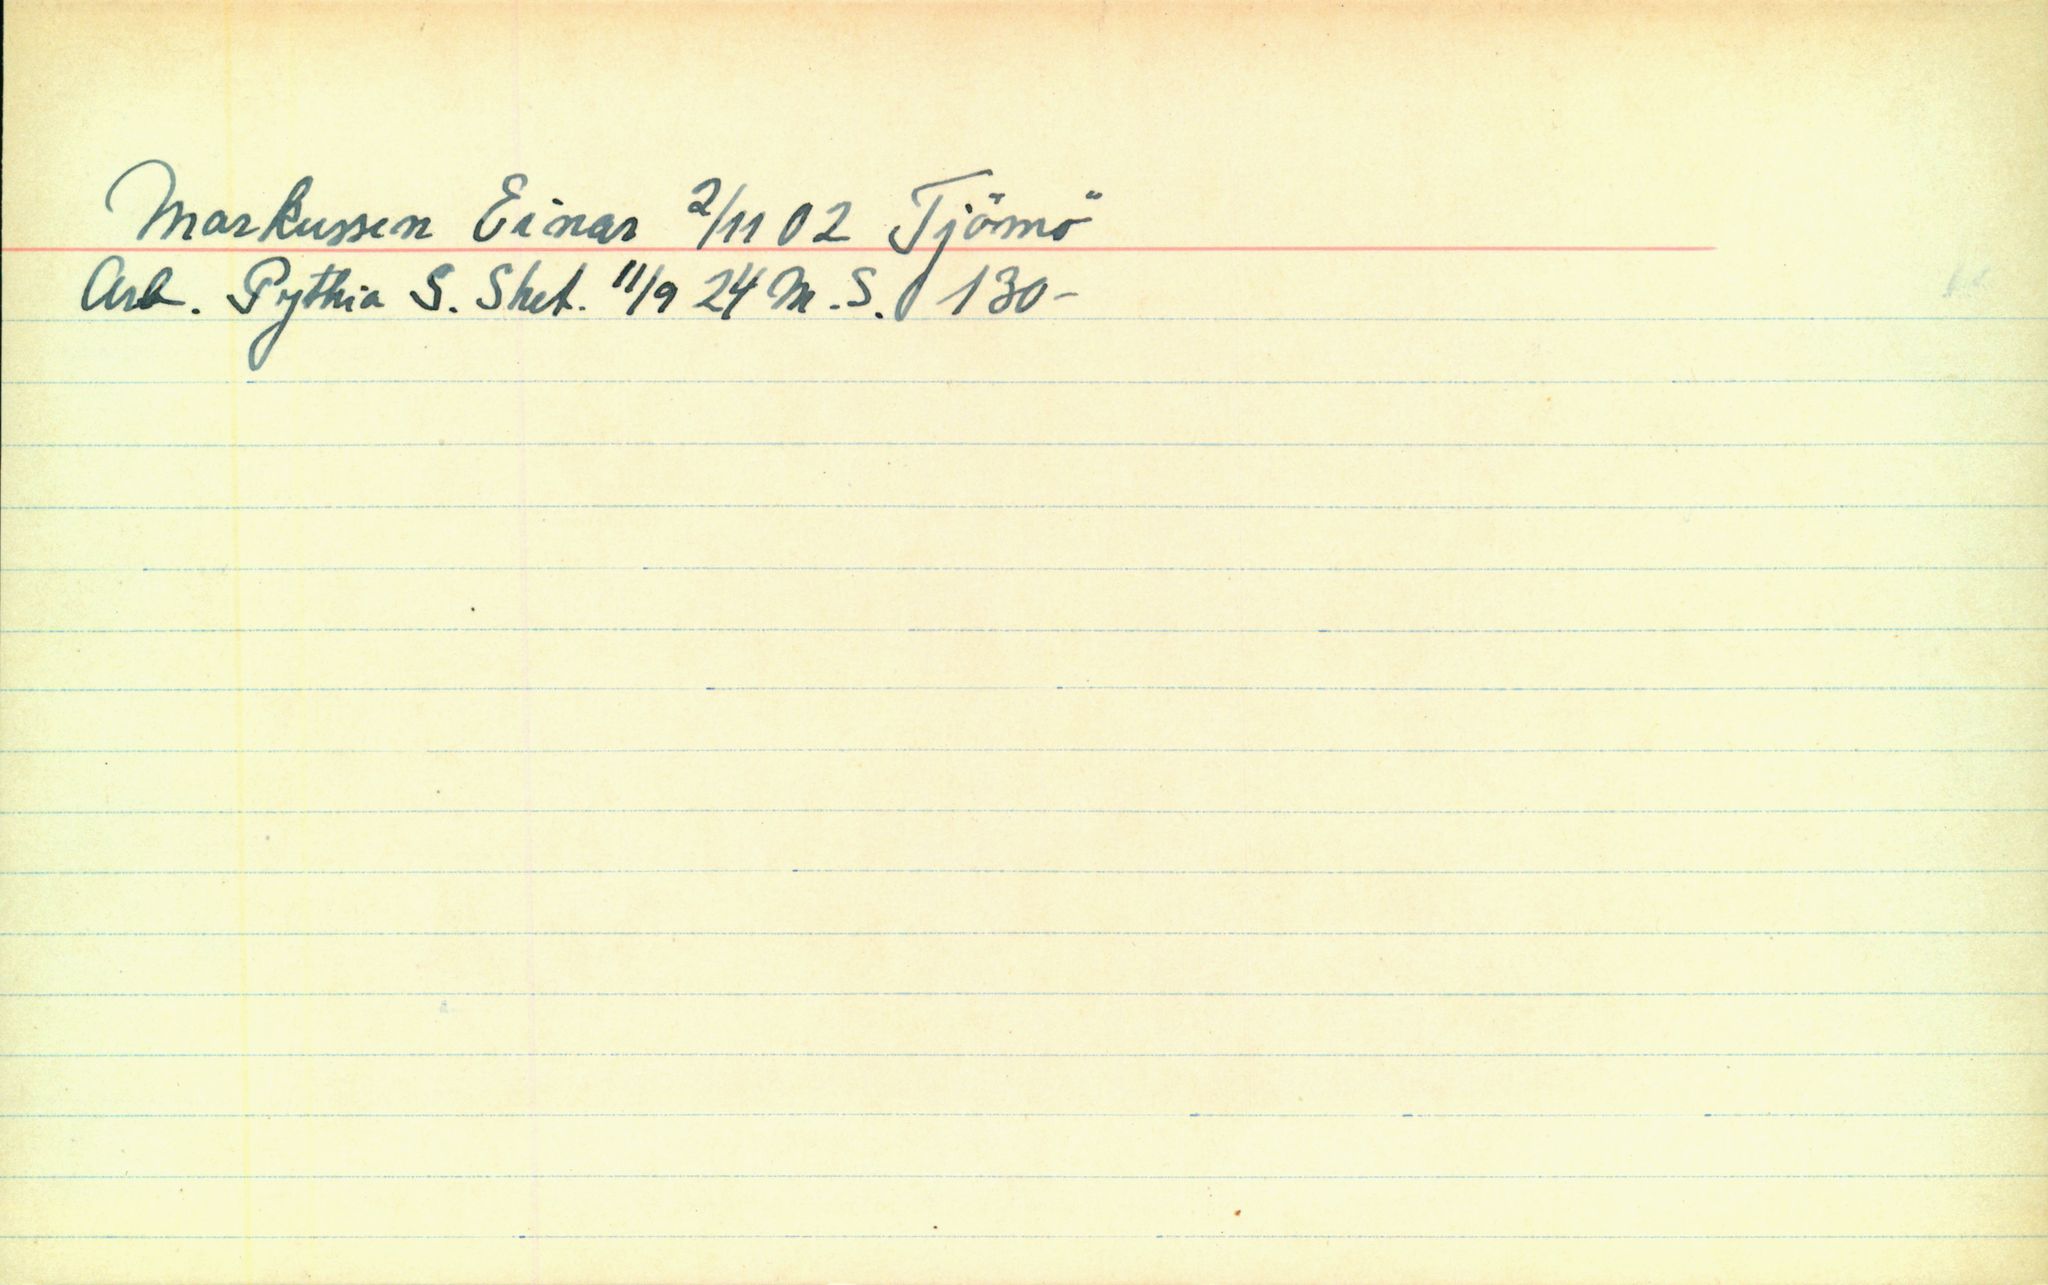 Markussen Einar 2/11 02 Tjömö
Arb. Pythia S. Shet. 11/9 24 M.S. 130-